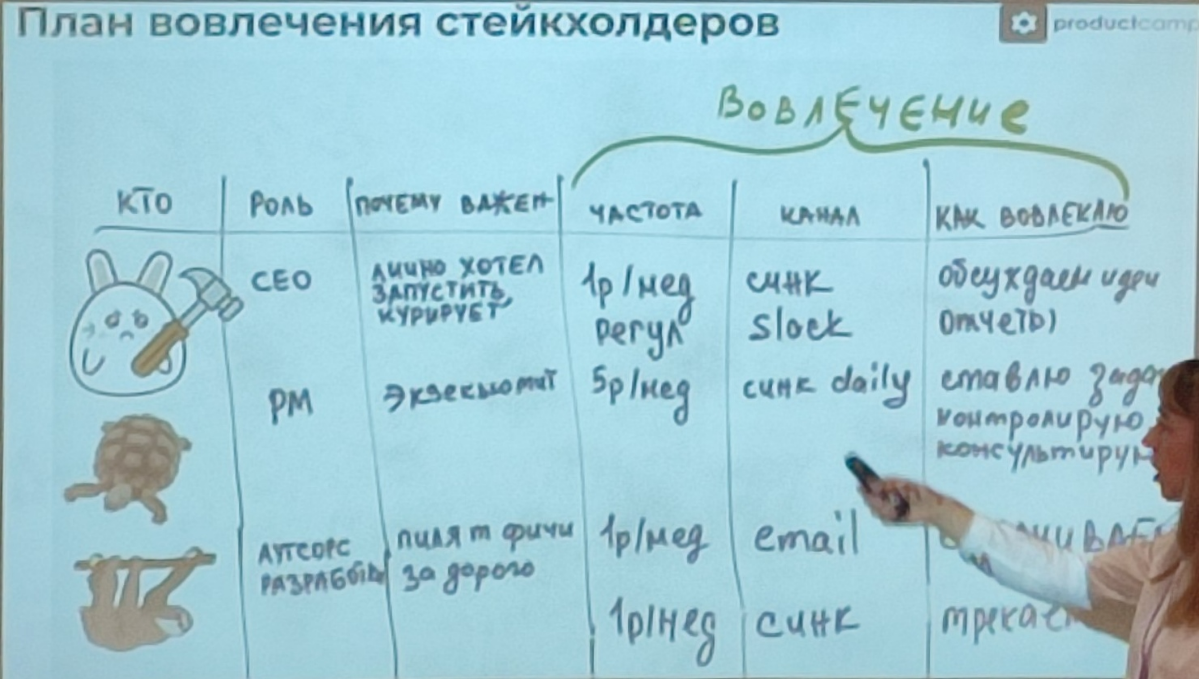 План вовлечения стейкхолдеров
productcamp
ВОВЛЕЧЕНИЕ
КТО
РОЛЬ
ПОЧЕМУ ВАЖЕН
ЧАСТОТА
КАНАЛ
КАК ВОВЛЕКАЮ
CEO
ЛИЧНО ХОТЕЛ
ЗАПУСТИТЬ,
КУРИРУЕТ
1р/нед
регул
синк
slack
обсуждаем идеи
отчеты
PM
экзекьютит
5р/нед
синк daily
ставлю
контролирую
консультирую
АУТСОРС
РАЗРАБОТКА
пилят фичи
за дорого
1р/нед
email
1р/нед
синк